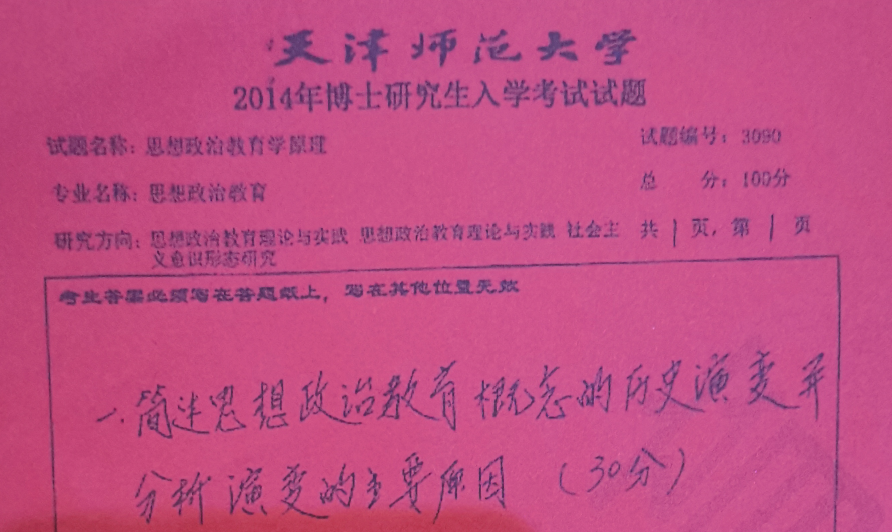 天津师范大学
2014年博士研究生入学考试试题
试题名称：思想政治教育学原理 试题编号：3090
专业名称：思想政治教育 总 分：100分
研究方向：思想政治教育理论与实践 思想政治教育理论与实践 社会主 共 1 页，第 1 页
义意识形态研究
考生答案必须写在答题纸上，写在其他位置无效
一.简述思想政治教育概念的历史演变并
分析演变的主要原因 （30分）